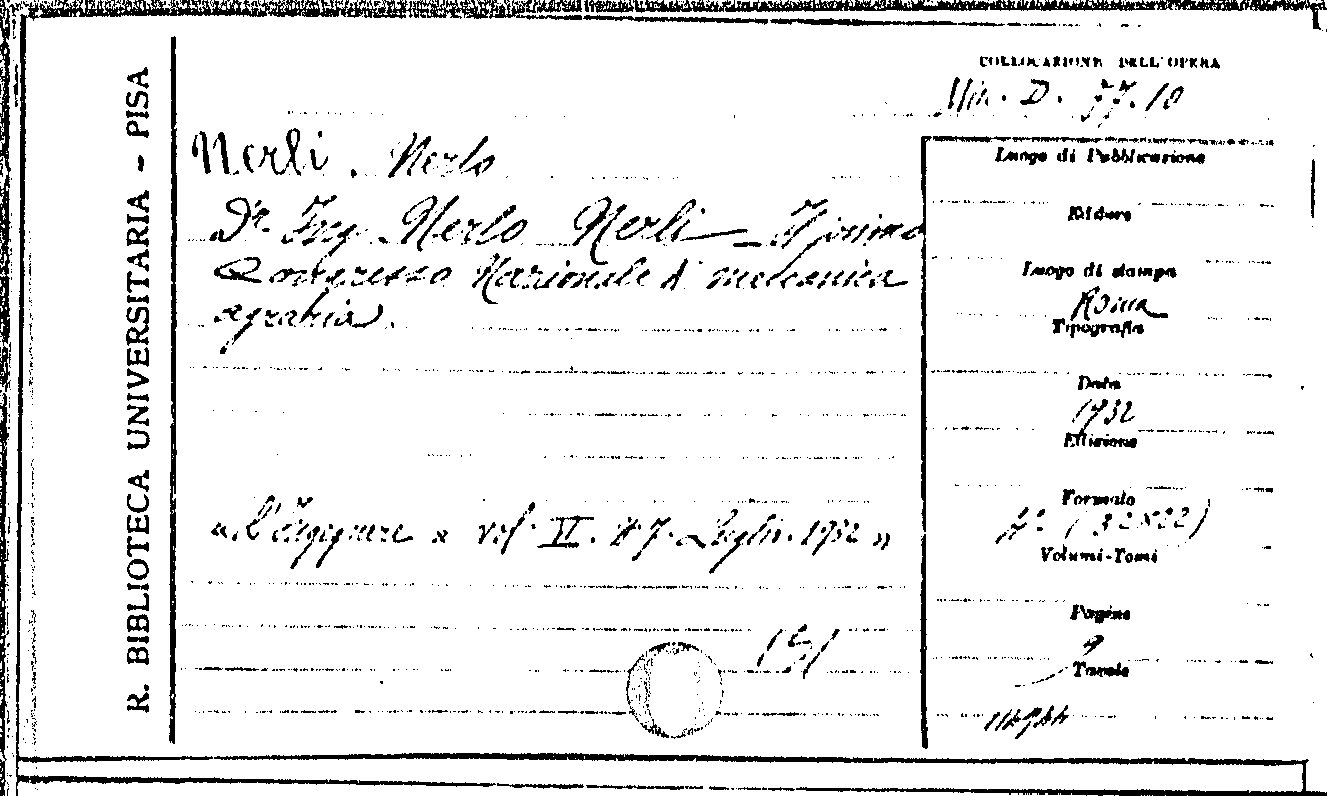 R. BIBLIOTECA UNIVERSITARIA - PISA
COLLOCAZIONE DELL'OPERA
Min. D. 77.10
Nerli, Nerlo
Dr. Ing. Nerlo Nerli - Il primo
Congresso Nazionale di meccanica
agraria.
"L'Ingegnere" vol. VI. N. 7. Luglio. 1932"
Luogo di Pubblicazione
Editore
Luogo di stampa
Roma
Tipografia
Data
1932
Edizione
Formato
4° (32x22)
Volumi-Tomi
Pagine
9
Tavole